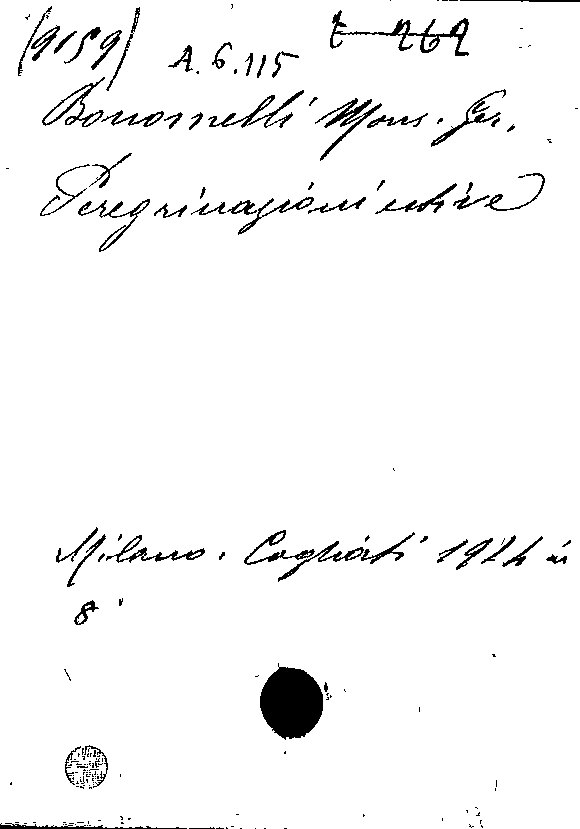 (9159) A.6.115 t 262
Bonomelli Mons. Ger.
Peregrinazioni estive
Milano. Cogliati 1924 in
8°